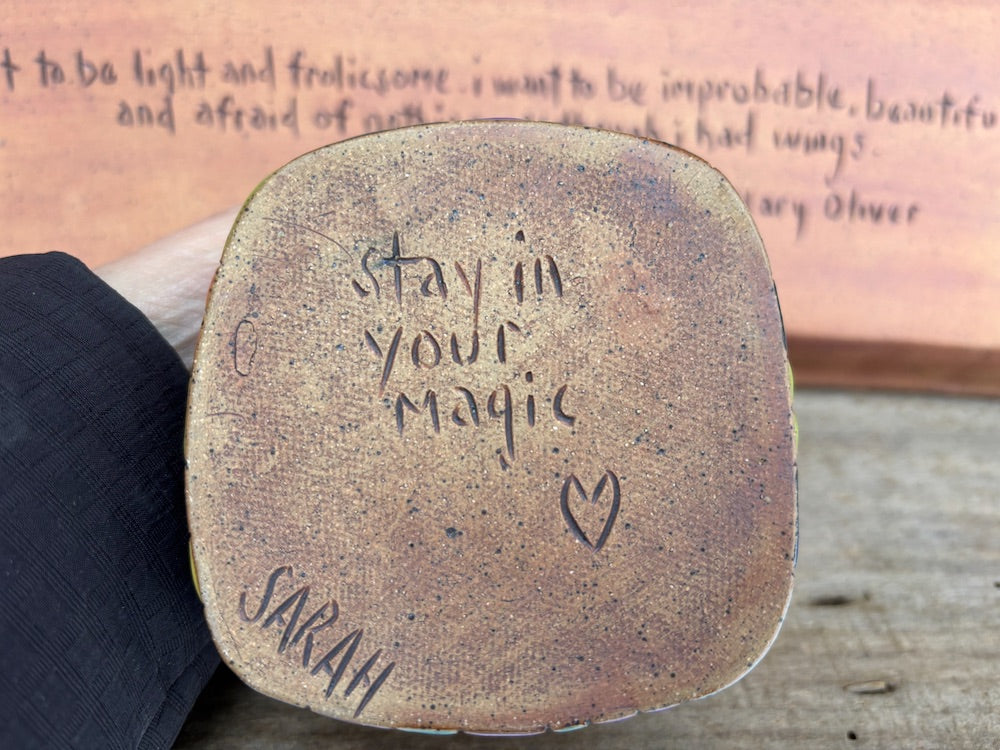 t to be light and frolicsome. i want to be improbable, beautifu
and afraid of i had wings.
ary Oliver
stay in
your
magic
SARAH